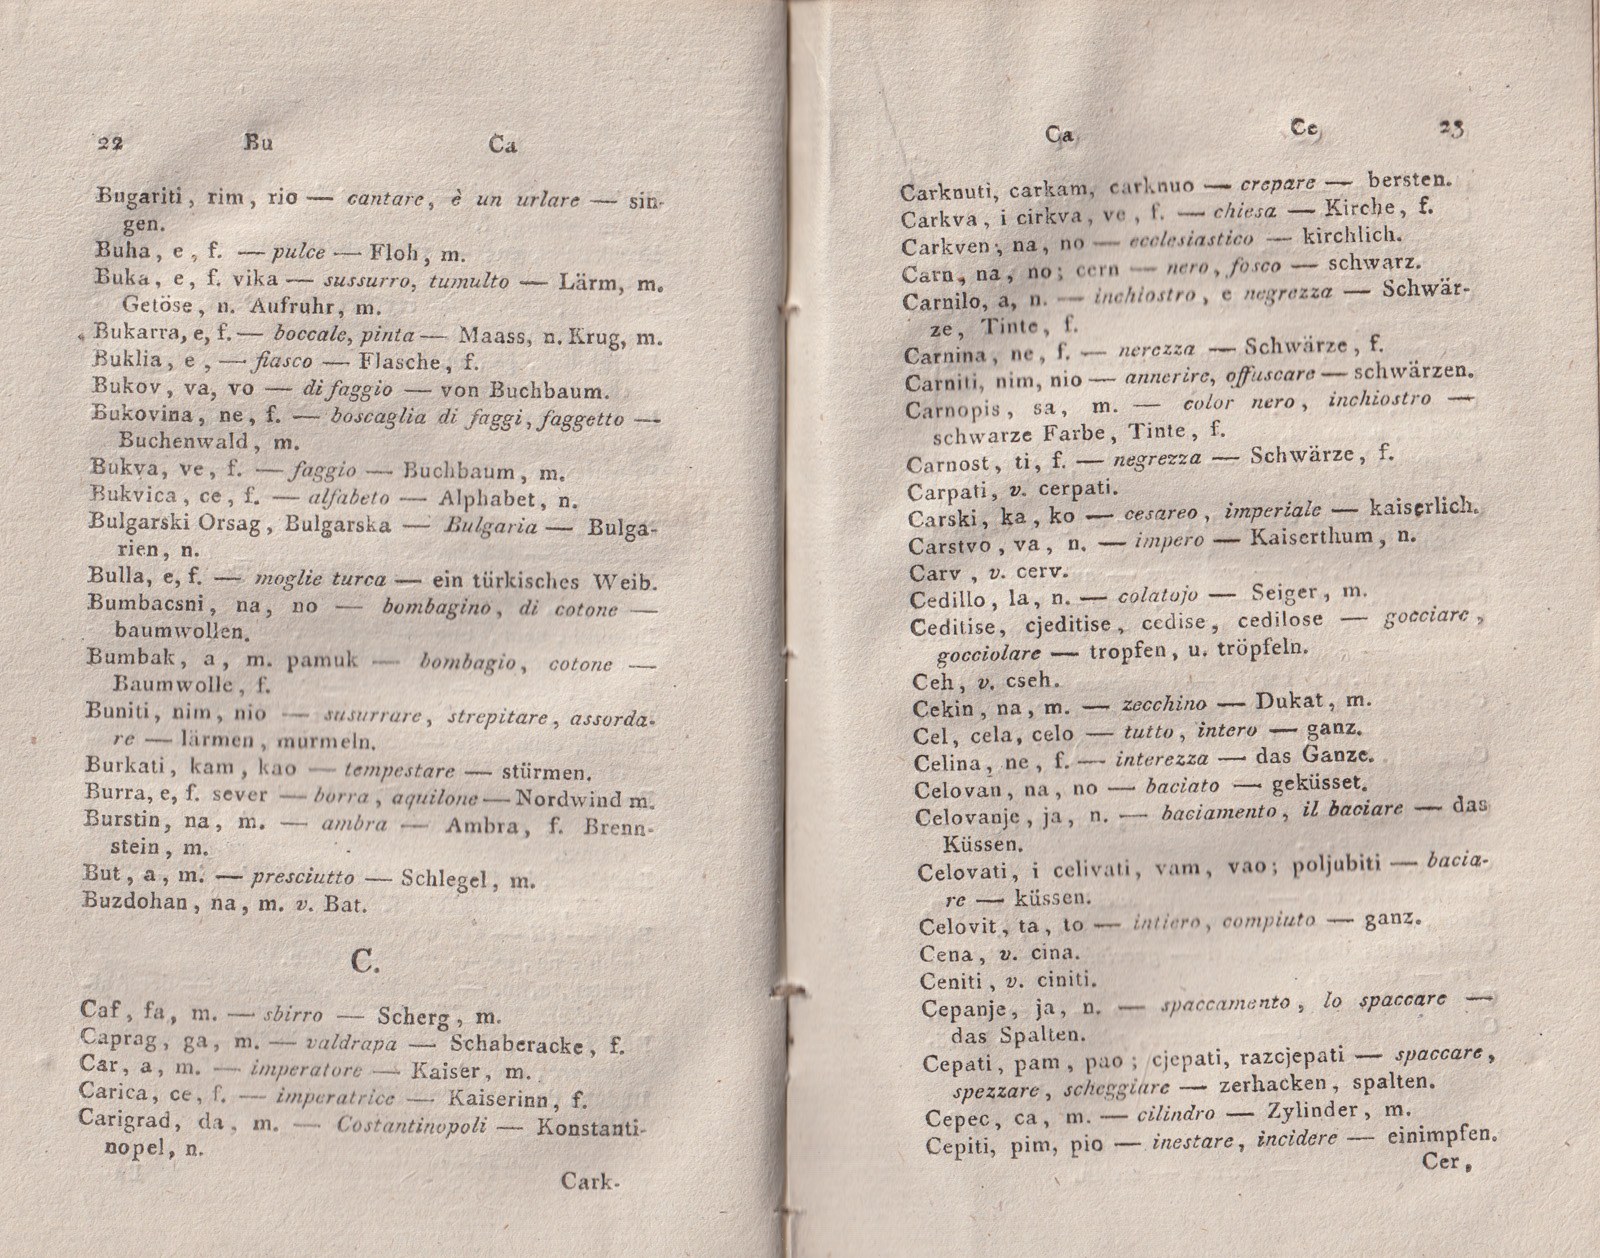 22 Bu Ca
Bugariti, rim, rio — cantare, è un urlare — sin-
gen.
Buha, e, f. — pulce — Floh, m.
Buka, e, f. vika — sussurro, tumulto — Lärm, m.
Getöse, n. Aufruhr, m.
Bukarra, e, f. — boccale, pinta — Maass, n. Krug, m.
Buklia, e, — fiasco — Flasche, f.
Bukov, va, vo — di faggio — von Buchbaum.
Bukovina, ne, f. — boscaglia di faggi, faggetto —
Buchenwald, m.
Bukva, ve, f. — faggio — Buchbaum, m.
Bukvica, ce, f. — alfabeto — Alphabet, n.
Bulgarski Orsag, Bulgarska — Bulgaria — Bulga-
rien, n.
Bulla, e, f. — moglie turca — ein türkisches Weib.
Bumbacsni, na, no — bombagino, di cotone —
baumwollen.
Bumbak, a, m. pamuk — bombagio, cotone —
Baumwolle, f.
Buniti, nim, nio — susurrare, strepitare, assorda-
re — lärmen, murmeln.
Burkati, kam, kao — tempestare — stürmen.
Burra, e, f. sever — borra, aquilone — Nordwind m.
Burstin, na, m. — ambra — Ambra, f. Brenn-
stein, m.
But, a, m. — presciutto — Schlegel, m.
Buzdohan, na, m. v. Bat.
C.
Caf, fa, m. — sbirro — Scherg, m.
Caprag, ga, m. — valdrapa — Schaberacke, f.
Car, a, m. — imperatore — Kaiser, m.
Carica, ce, f. — imperatrice — Kaiserinn, f.
Carigrad, da, m. — Costantinopoli — Konstanti-
nopel, n.
Cark-
Ca Ce 23
Carknuti, carkam, carknuo — crepare — bersten.
Carkva, i cirkva, ve, f. — chiesa — Kirche, f.
Carkven, na, no — ecclesiastico — kirchlich.
Carn, na, no; cern — nero, fosco — schwarz.
Carnilo, a, n. — inchiostro, e negrezza — Schwär-
ze, Tinte, f.
Carnina, ne, f. — nerezza — Schwärze, f.
Carniti, nim, nio — annerire, offuscare — schwärzen.
Carnopis, sa, m. — color nero, inchiostro —
schwarze Farbe, Tinte, f.
Carnost, ti, f. — negrezza — Schwärze, f.
Carpati, v. cerpati.
Carski, ka, ko — cesareo, imperiale — kaiserlich.
Carstvo, va, n. — impero — Kaiserthum, n.
Carv, v. cerv.
Cedillo, la, n. — colatojo — Seiger, m.
Ceditise, cjeditise, cedise, cedilose — gocciare,
gocciolare — tropfen, u. tröpfeln.
Ceh, v. cseh.
Cekin, na, m. — zecchino — Dukat, m.
Cel, cela, celo — tutto, intero — ganz.
Celina, ne, f. — interezza — das Ganze.
Celovan, na, no — baciato — geküsset.
Celovanje, ja, n. — baciamento, il baciare — das
Küssen.
Celovati, i celivati, vam, vao; poljubiti — bacia-
re — küssen.
Celovit, ta, to — intiero, compiuto — ganz.
Cena, v. cina.
Ceniti, v. ciniti.
Cepanje, ja, n. — spaccamento, lo spaccare —
das Spalten.
Cepati, pam, pao; cjepati, razcjepati — spaccare,
spezzare, scheggiare — zerhacken, spalten.
Cepec, ca, m. — cilindro — Zylinder, m.
Cepiti, pim, pio — inestare, incidere — einimpfen.
Cer,